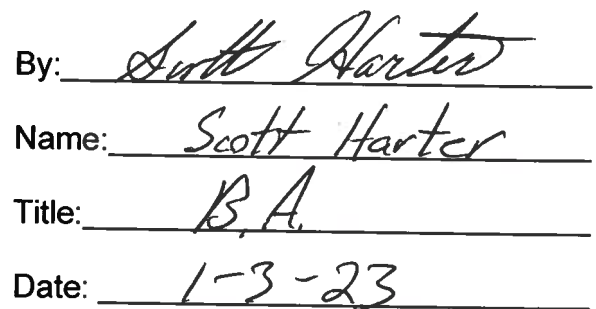 By: Scott Harter
Name: Scott Harter
Title: B.A.
Date: 1-3-23